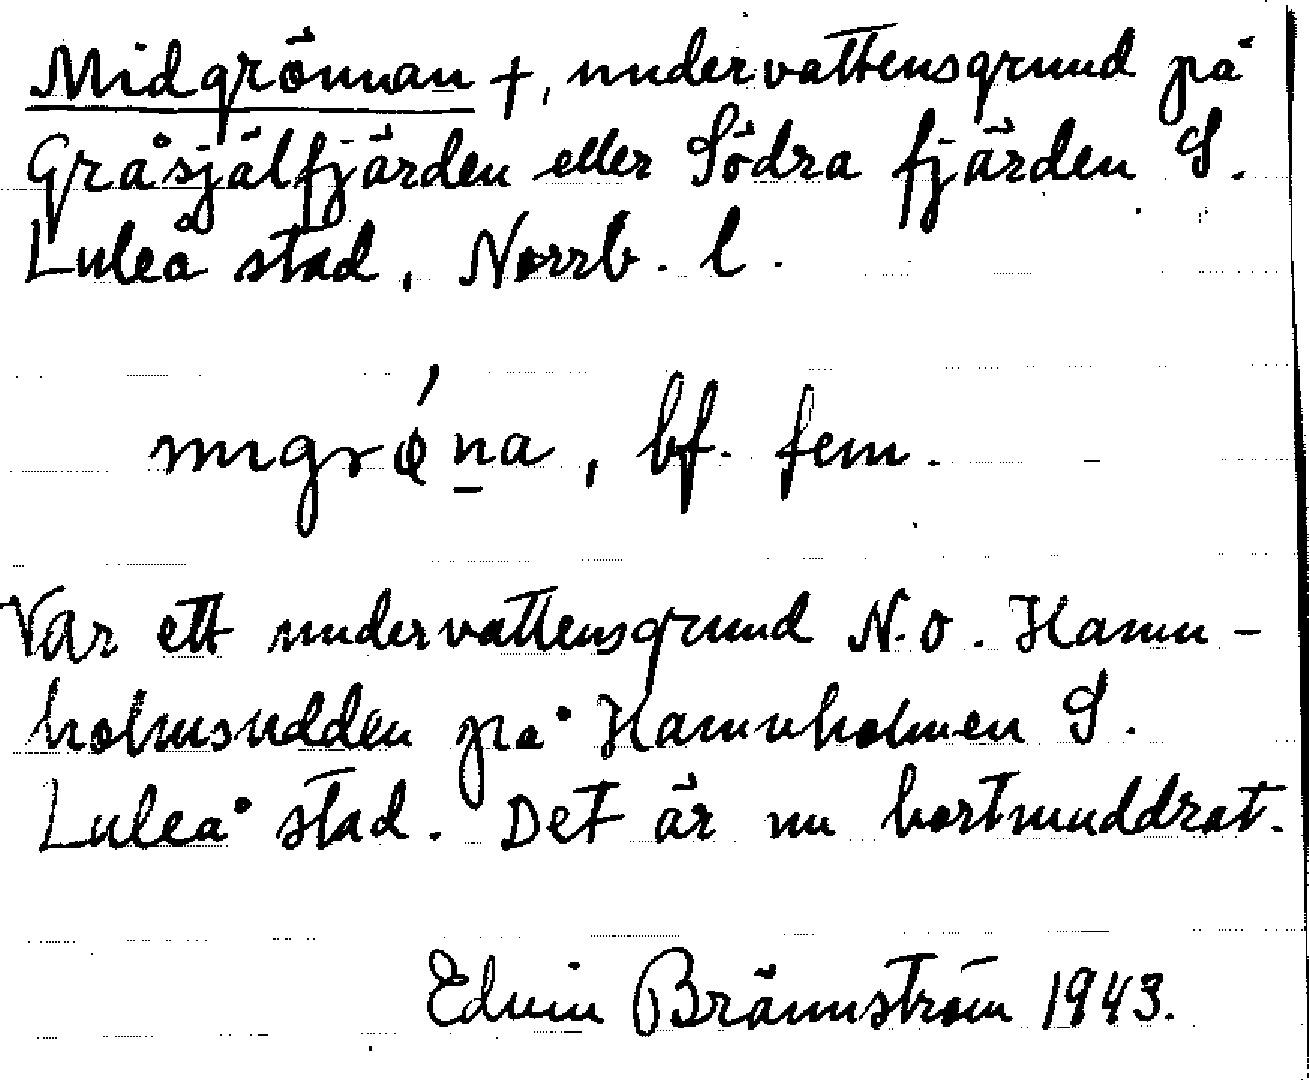 Midgrönnan †, undervattensgrund på
Gråsjälfjärden eller Södra fjärden S.
Luleå stad, Norrb. l.
migrǿ́n̲a, bf. fem.
Var ett undervattensgrund N.O. Hamn-
holmsudden på Hamnholmen S.
Luleå stad. Det är nu bortmuddrat.
Edvin Brännström 1943.